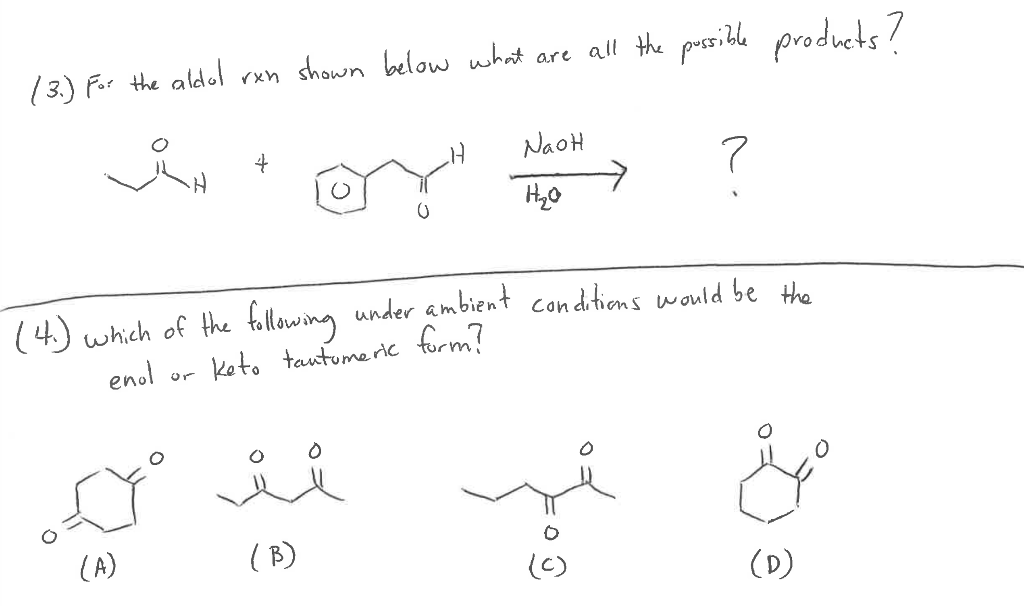 (3.) For the aldol rxn shown below what are all the possible products?
O
H
+
O
H
O
NaOH
H2O
?
(4.) which of the following under ambient conditions would be the
enol or keto tautomeric form?
O
O
(A)
O O
(B)
O
O
(C)
O
O
(D)